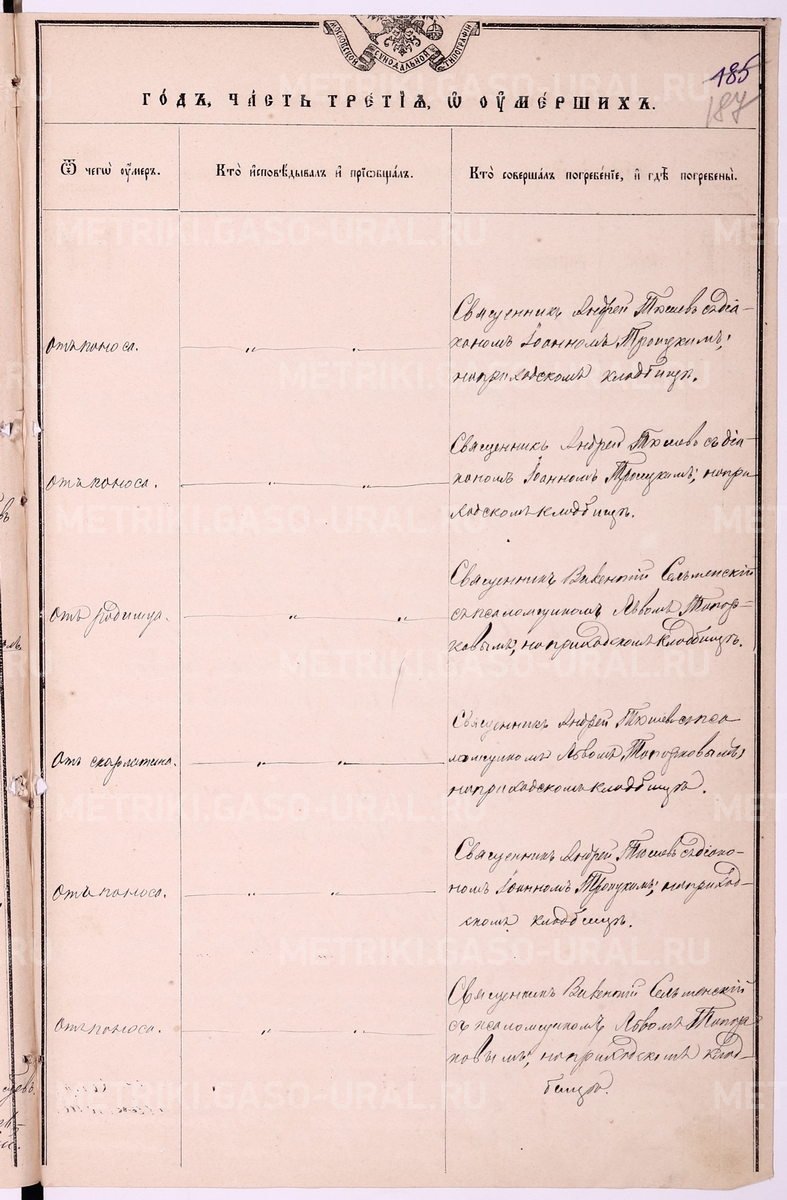 МОСКОВСКОЙ СѴНОДАЛЬНОЙ ТИПОГРАФІИ
185
187
ГО́ДЪ, ЧА́СТЬ ТРЕ́ТІѦ, Ѡ҆ ОУ҆МЕ́РШИХЪ.
Ѿ чегѡ̀ оу҆́меръ.
Кто̀ и҆сповѣ́дывалъ и҆ прїѡбща́лъ.
Кто̀ соверша́лъ погребе́нїе, и҆ гдѣ̀ погребены̀.
Отъ поноса.
Священникъ Андрей съ діа-
кономъ Іоанномъ Троицкимъ,
на приходскомъ кладбищѣ.
Отъ поноса.
Священникъ Андрей съ діа-
кономъ Іоанномъ Троицкимъ, на при
ходскомъ кладбищѣ.
Отъ родимца.
Священникъ Викентій Сельменскій
съ псаломщикомъ Львомъ Топор-
ковымъ, на приходскомъ кладбищѣ.
Отъ скарлатина.
Священникъ Андрей съ пса
ломщикомъ Львомъ Топорковымъ,
на приходскомъ кладбищѣ.
Отъ поноса.
Священникъ Андрей съ діако-
номъ Іоанномъ Троицкимъ, на приход-
скомъ кладбищѣ.
Отъ поноса.
Священникъ Викентій Сельменскій
съ псаломщикомъ Львомъ Топор
ковымъ, на приходскомъ клад-
бищѣ.
METRIKI.GASO-URAL.RU